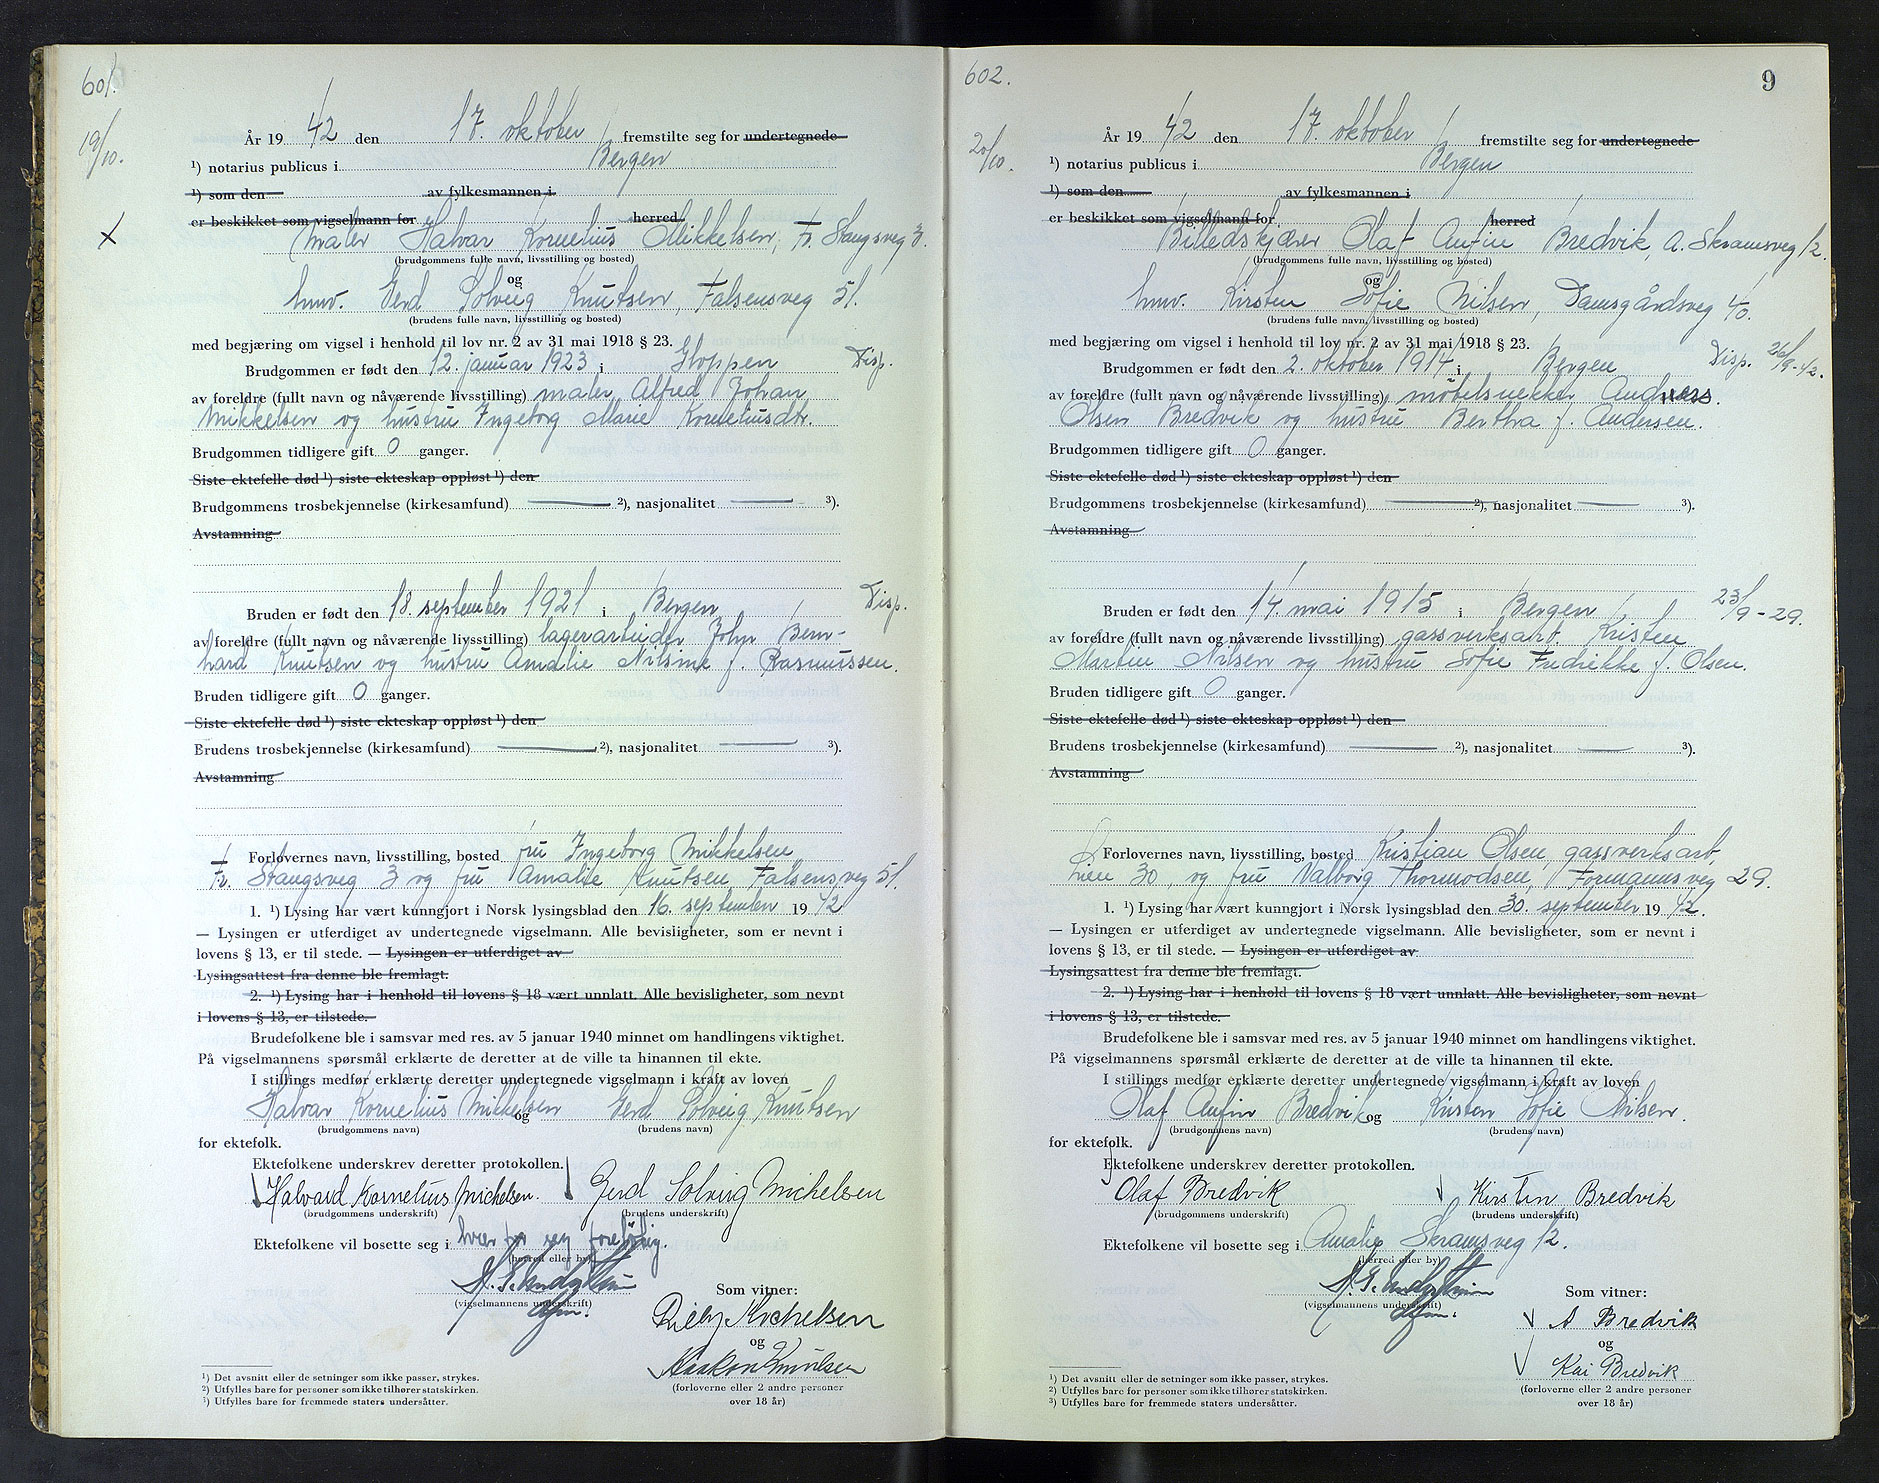 601.
19/10.
År 19 42 den 17. oktober fremstilte seg for undertegnede
¹) notarius publicus i Bergen
¹) som den av fylkesmannen i
er beskikket som vigselmann for herred
Maler Halvar Kornelius Mikkelsen, Fr. Stangsveg 3.
(brudgommens fulle navn, livsstilling og bosted)
og
hmv. Gerd Solveig Knutsen, Falsensveg 51.
(brudens fulle navn, livsstilling og bosted)
med begjæring om vigsel i henhold til lov nr. 2 av 31 mai 1918 § 23.
Brudgommen er født den 12. januar 1923 i Gloppen Disp.
av foreldre (fullt navn og nåværende livsstilling) maler Alfred Johan
Mikkelsen og hustru Ingeborg Marie Korneliusdtr.
Brudgommen tidligere gift 0 ganger.
Siste ektefelle død ¹) siste ekteskap oppløst ¹) den
Brudgommens trosbekjennelse (kirkesamfund) — ²), nasjonalitet — ³).
Avstamning
Bruden er født den 18. september 1921 i Bergen Disp.
av foreldre (fullt navn og nåværende livsstilling) lagerarbeider John Bern-
hard Knutsen og hustru Amalie Nilsine f. Rasmussen.
Bruden tidligere gift 0 ganger.
Siste ektefelle død ¹) siste ekteskap oppløst ¹) den
Brudens trosbekjennelse (kirkesamfund) — ²), nasjonalitet — ³).
Avstamning
Forlovernes navn, livsstilling, bosted fru Ingeborg Mikkelsen
Fr. Stangsveg 3 og fru Amalie Knutsen, Falsensveg 51.
1. ¹) Lysing har vært kunngjort i Norsk lysingsblad den 16. september 19 42
— Lysingen er utferdiget av undertegnede vigselmann. Alle bevisligheter, som er nevnt i
lovens § 13, er til stede. — Lysingen er utferdiget av
Lysingsattest fra denne ble fremlagt.
2. ¹) Lysing har i henhold til lovens § 18 vært unnlatt. Alle bevisligheter, som nevnt
i lovens § 13, er tilstede.
Brudefolkene ble i samsvar med res. av 5 januar 1940 minnet om handlingens viktighet.
På vigselmannens spørsmål erklærte de deretter at de ville ta hinannen til ekte.
I stillings medfør erklærte deretter undertegnede vigselmann i kraft av loven
Halvar Kornelius Mikkelsen og Gerd Solveig Knutsen
(brudgommens navn) (brudens navn)
for ektefolk.
Ektefolkene underskrev deretter protokollen.
Halvard Kornelius Michelsen. Gerd Solveig Michelsen
(brudgommens underskrift) (brudens underskrift)
Ektefolkene vil bosette seg i hver for seg foreløbig.
(herred eller by)
(vigselmannens underskrift)
Som vitner:
Michelsen
og
Haakon Knutsen
(forloverne eller 2 andre personer
over 18 år)
¹) Det avsnitt eller de setninger som ikke passer, strykes.
²) Utfylles bare for personer som ikke tilhører statskirken.
³) Utfylles bare for fremmede staters undersåtter.
602.
9
20/10.
År 19 42 den 17. oktober fremstilte seg for undertegnede
¹) notarius publicus i Bergen
¹) som den av fylkesmannen i
er beskikket som vigselmann for herred
Billedskjærer Olaf Anfin Bredvik, A. Skramsveg 12.
(brudgommens fulle navn, livsstilling og bosted)
og
hmv. Kirsten Sofie Nilsen, Damsgårdsveg 40.
(brudens fulle navn, livsstilling og bosted)
med begjæring om vigsel i henhold til lov nr. 2 av 31 mai 1918 § 23.
Brudgommen er født den 2. oktober 1914 i Bergen Disp. 26/9-42.
av foreldre (fullt navn og nåværende livsstilling) møbelsnekker Andreas
Olsen Bredvik og hustru Bertha f. Andersen.
Brudgommen tidligere gift 0 ganger.
Siste ektefelle død ¹) siste ekteskap oppløst ¹) den
Brudgommens trosbekjennelse (kirkesamfund) — ²), nasjonalitet — ³).
Avstamning
Bruden er født den 14. mai 1915 i Bergen 23/9-29.
av foreldre (fullt navn og nåværende livsstilling) gassverksarb. Kristen
Martin Nilsen og hustru Sofie Fredrikke f. Olsen.
Bruden tidligere gift 0 ganger.
Siste ektefelle død ¹) siste ekteskap oppløst ¹) den
Brudens trosbekjennelse (kirkesamfund) — ²), nasjonalitet — ³).
Avstamning
Forlovernes navn, livsstilling, bosted Kristian Olsen, gassverksarb,
30, og fru Valborg Thormodsen, Formannsveg 29.
1. ¹) Lysing har vært kunngjort i Norsk lysingsblad den 30. september 19 42.
— Lysingen er utferdiget av undertegnede vigselmann. Alle bevisligheter, som er nevnt i
lovens § 13, er til stede. — Lysingen er utferdiget av
Lysingsattest fra denne ble fremlagt.
2. ¹) Lysing har i henhold til lovens § 18 vært unnlatt. Alle bevisligheter, som nevnt
i lovens § 13, er tilstede.
Brudefolkene ble i samsvar med res. av 5 januar 1940 minnet om handlingens viktighet.
På vigselmannens spørsmål erklærte de deretter at de ville ta hinannen til ekte.
I stillings medfør erklærte deretter undertegnede vigselmann i kraft av loven
Olaf Anfin Bredvik og Kirsten Sofie Nilsen.
(brudgommens navn) (brudens navn)
for ektefolk.
Ektefolkene underskrev deretter protokollen.
Olaf Bredvik Kirsten Bredvik
(brudgommens underskrift) (brudens underskrift)
Ektefolkene vil bosette seg i Amalie Skramsveg 12.
(herred eller by)
(vigselmannens underskrift)
Som vitner:
A Bredvik
og
Kai Bredvik
(forloverne eller 2 andre personer
over 18 år)
¹) Det avsnitt eller de setninger som ikke passer, strykes.
²) Utfylles bare for personer som ikke tilhører statskirken.
³) Utfylles bare for fremmede staters undersåtter.